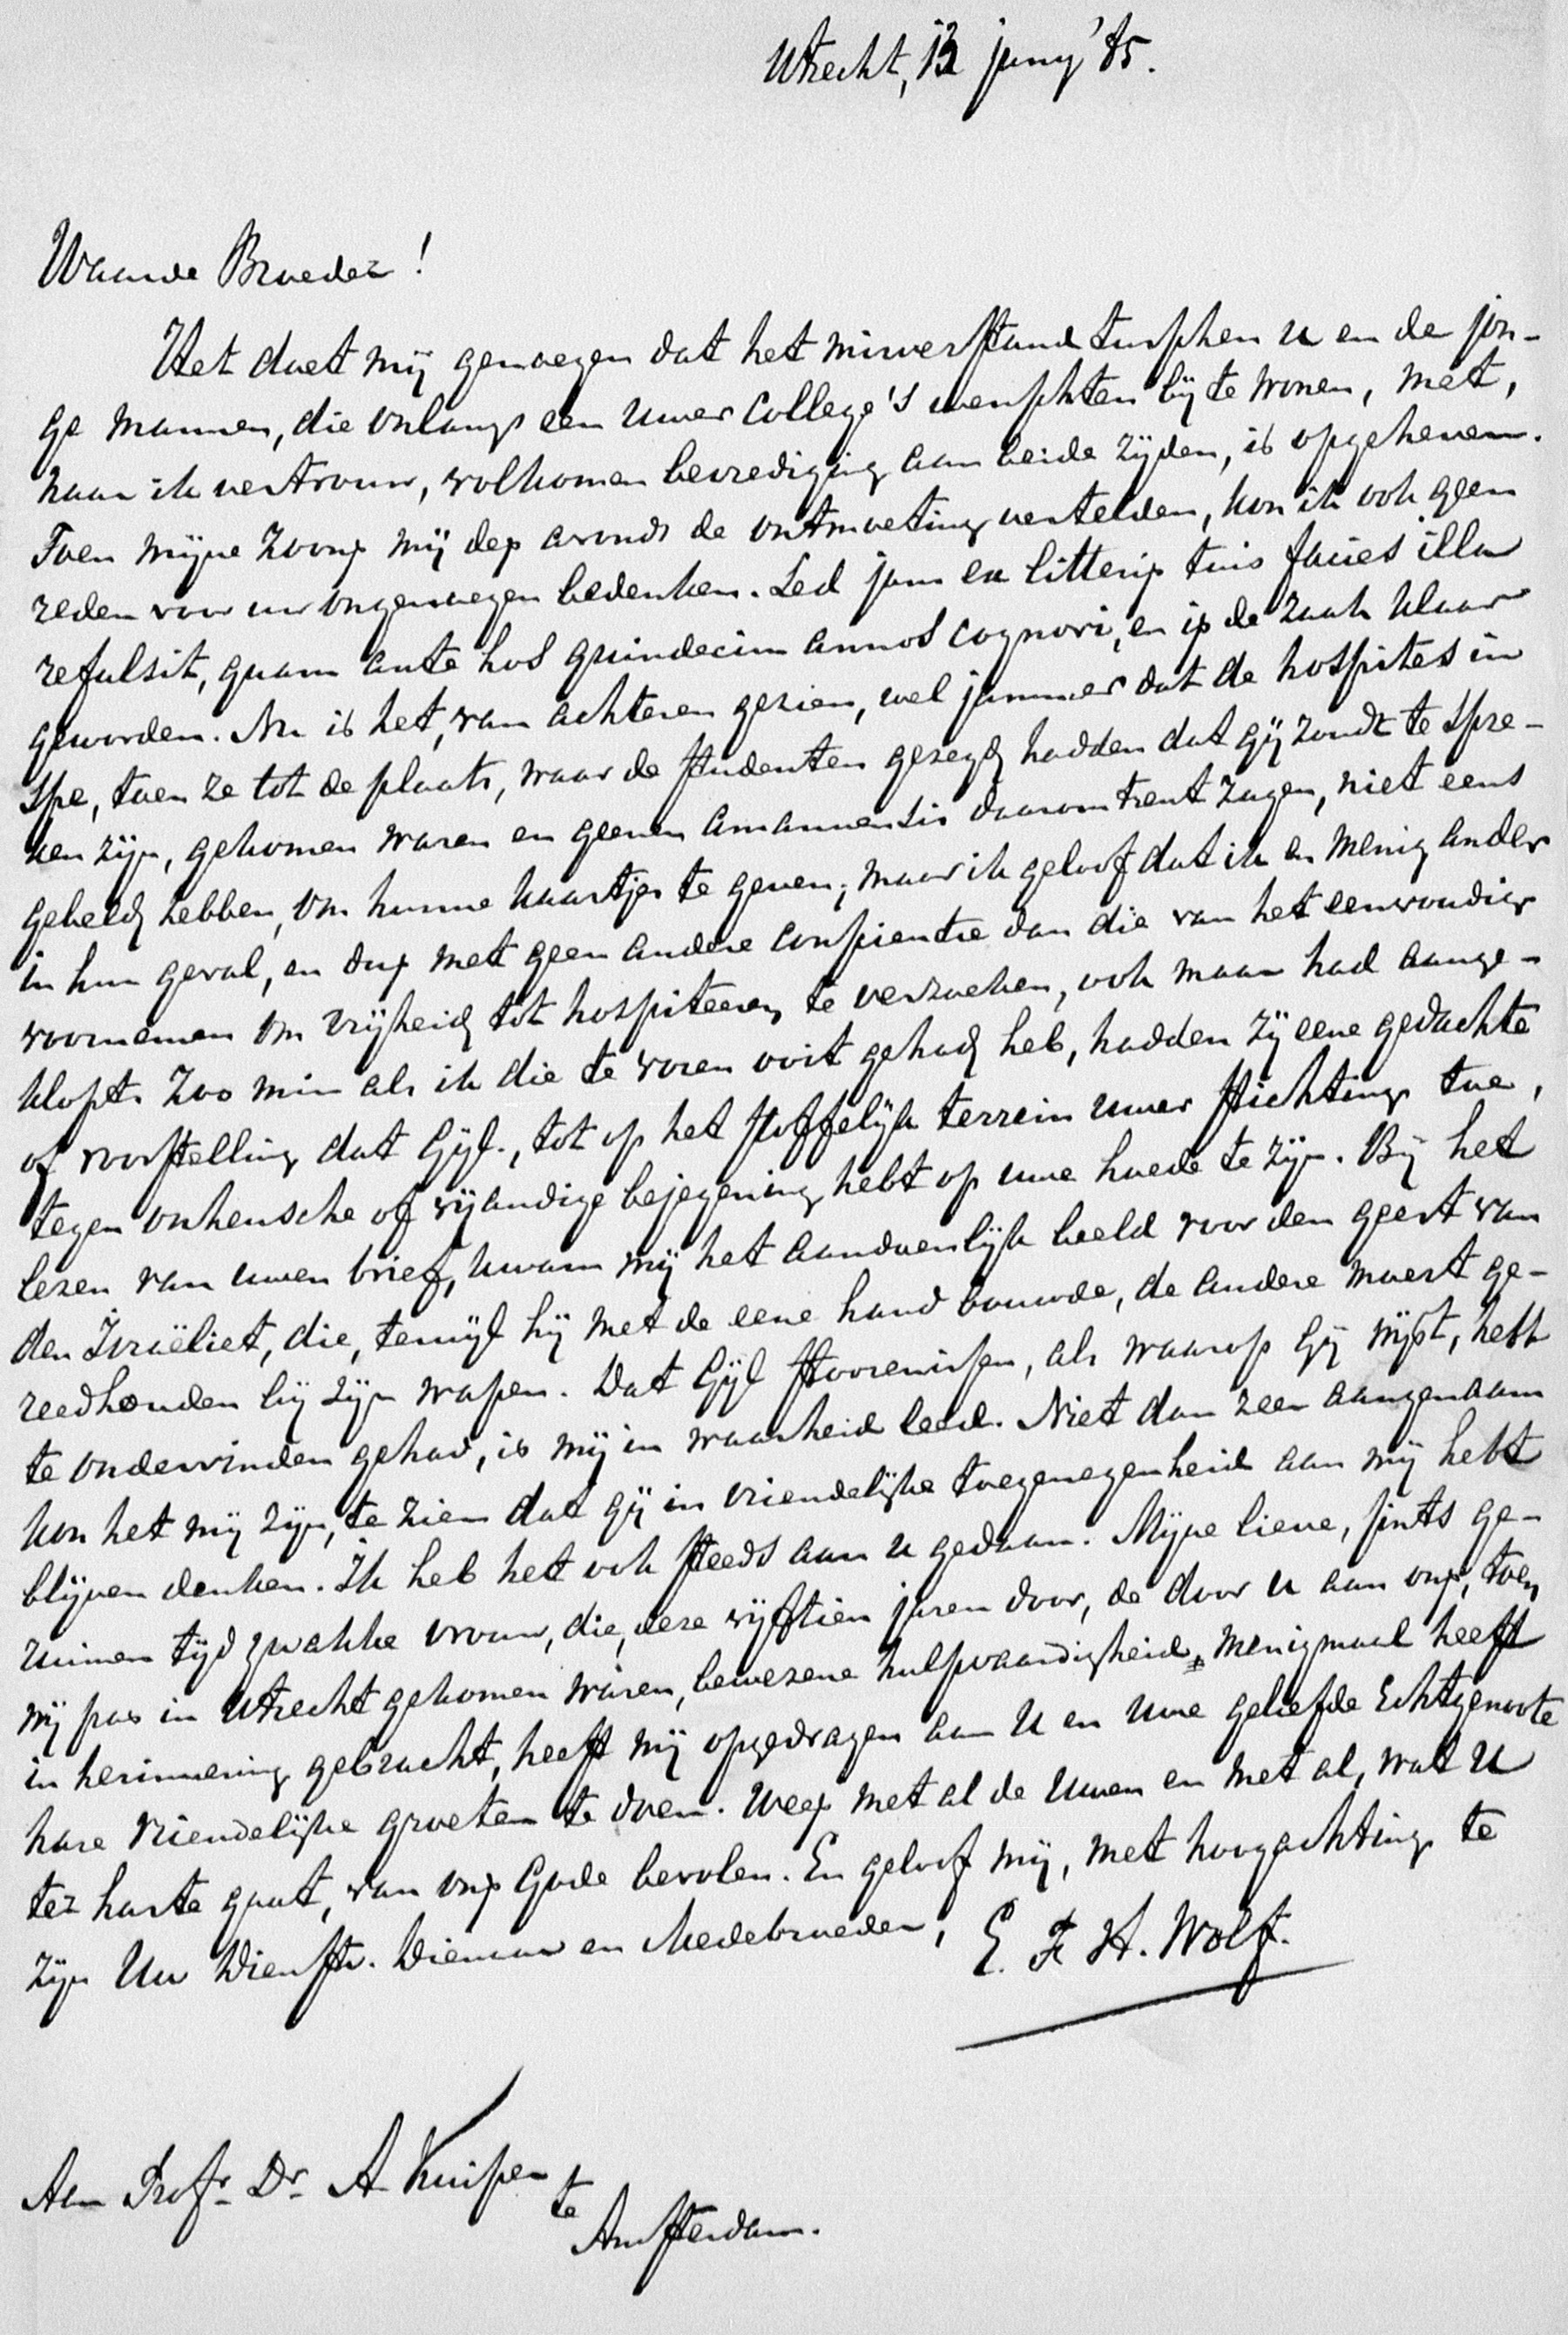 Utrecht, 12 juny '85.
Waarde Broeder!
Het doet mij genoegen dat het misverstand tusschen u en de jon-
ge mannen, die onlangs een uwer college's wenschten bij te wonen, met,
naar ik vertrouw, volkomen bevrediging aan beide zijden, is opgeheven.
Toen mijne zoons mij des avonds de ontmoeting vertelden, kon ik ook geen
reden voor uw ongenoegen bedenken. Sed jam ex litteris tuis facies illa
refulsit, quam ante hos quindecim annos cognovi, en is de zaak klaar
geworden. Nu is het, van achteren gezien, wel jammer dat de hospites in
spe, toen ze tot de plaats, waar de studenten gezegd hadden dat gij zoudt te spre-
ken zijn, gekomen waren en geenen amanuensis daaromtrent zagen, niet eens
gebeld hebben, om hunne kaartjes te geven; maar ik geloof dat ik en menig ander
in hun geval, en dus met geen andere conscientie dan die van het eenvoudig
voornemen om vrijheid tot hospiteeren te verzoeken, ook maar had aange-
klopt. Zoo min als ik die te voren ooit gehad heb, hadden zij eene gedachte
of voorstelling dat Gijl., tot op het stoffelijk terrein uwer stichting toe,
tegen onheusche of vijandige bejegening hebt op uwe hoede te zijn. Bij het
lezen van uwen brief, kwam mij het aandoenlijk beeld voor den geest van
den Israëliet, die, terwijl hij met de eene hand bouwde, de andere moest ge-
reedhouden bij zijn wapen. Dat Gijl stoorenissen, als waarop Gij wijst, hebt
te ondervinden gehad, is mij in waarheid leed. Niet dan zeer aangenaam
kon het mij zijn, te zien dat gij in vriendelijke toegenegenheid aan mij hebt
blijven denken. Ik heb het ook steeds aan u gedaan. Mijne lieve, sints ge-
ruimen tijd zwakke vrouw, die, deze vijftien jaren door, de door u aan ons, toen
wij pas in Utrecht gekomen waren, bewezene hulpvaardigheid, menigmaal heeft
in herinnering gebracht, heeft mij opgedragen aan U en Uwe geliefde Echtgenoote
hare vriendelijke groeten te doen. Wees met al de Uwen en met al, wat U
ter harte gaat, van ons Gode bevolen. En geloof mij, met hoogachting te
zijn Uw Dienstv. Dienaar en Medebroeder, E. F. H. Wolf.
Aan Prof.r Dr. A Kuiper
te
Amsterdam.